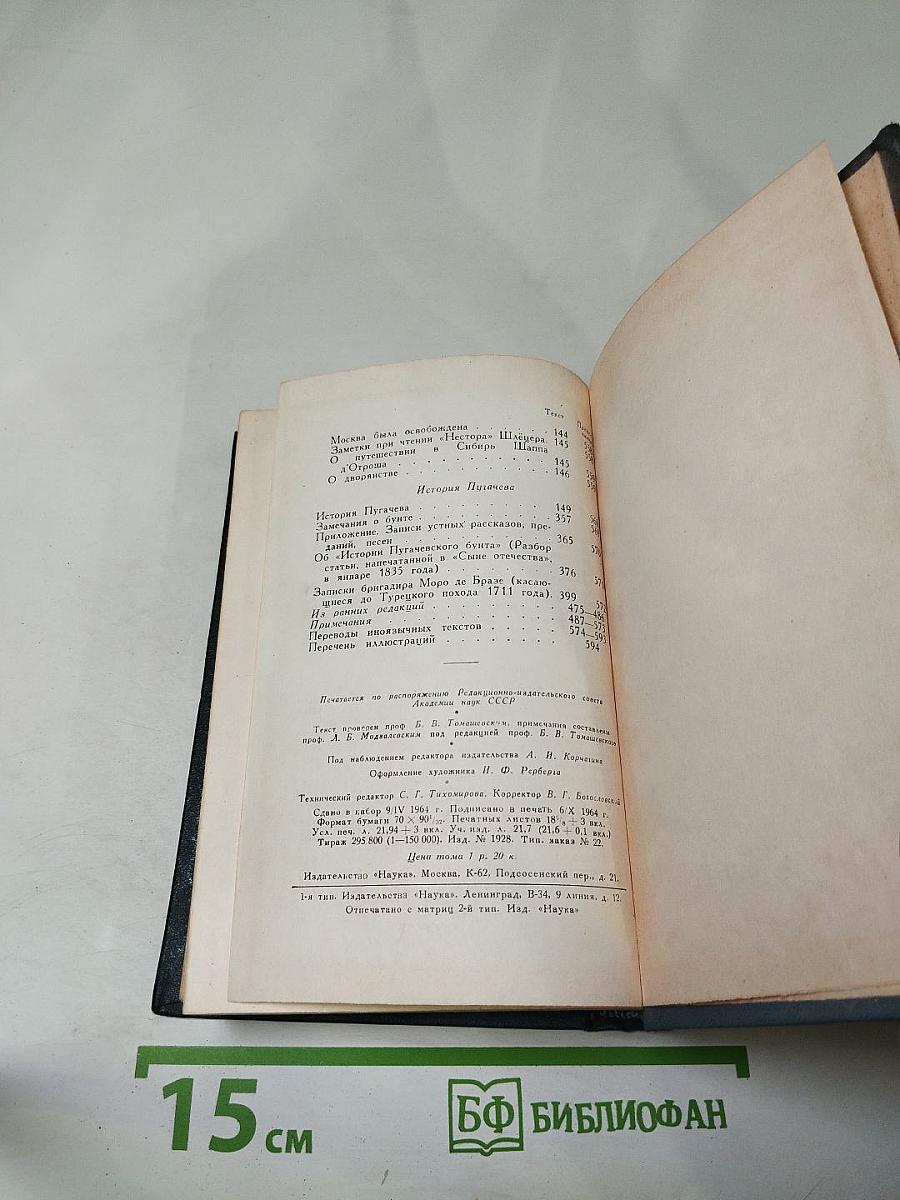 Текст
Москва была освобождена . . . . . . 144
Заметки при чтении «Нестора» Шлёцера. 145
О путешествии в Сибирь Шаппа
д'Отроша . . . . . . . . . . 145
О дворянстве . . . . . . . . . . 146
История Пугачева
История Пугачева . . . . . . . . . 149
Замечания о бунте . . . . . . . . . 357
Приложение. Записи устных рассказов, пре-
даний, песен . . . . . . . . . . 365
Об «Истории Пугачевского бунта» (Разбор
статьи, напечатанной в «Сыне отечества»,
в январе 1835 года) . . . . . . . . 376
Записки бригадира Моро де Бразе (касаю-
щиеся до Турецкого похода 1711 года). 399
Из ранних редакций . . . . . . . 475—
Примечания . . . . . . . . . 487—573
Переводы иноязычных текстов . . . . . 574—593
Перечень иллюстраций . . . . . . . . 594
Печатается по распоряжению Редакционно-издательского совета
Академии наук СССР
Текст проверен проф. Б. В. Томашевским, примечания составлены
проф. Л. Б. Модзалевским под редакцией проф. Б. В. Томашевского
Под наблюдением редактора издательства А. И. Корчагина
Оформление художника И. Ф. Рерберга
Технический редактор С. Г. Тихомирова. Корректор В. Г. Богословский
Сдано в набор 9/IV 1964 г. Подписано в печать 6/X 1964 г.
Формат бумаги 70 × 90¹/₃₂. Печатных листов 18³/₄ + 3 вкл.
Усл. печ. л. 21,94 + 3 вкл. Уч. изд. л. 21,7 (21,6 + 0,1 вкл.)
Тираж 295 800 (1—150 000). Изд. № 1928. Тип. заказ № 22.
Цена тома 1 р. 20 к.
Издательство «Наука». Москва, К-62, Подсосенский пер., д. 21.
1-я тип. Издательства «Наука». Ленинград, В-34, 9 линия, д. 12.
Отпечатано с матриц 2-й тип. Изд. «Наука»
15 см
БФ БИБЛИОФАН